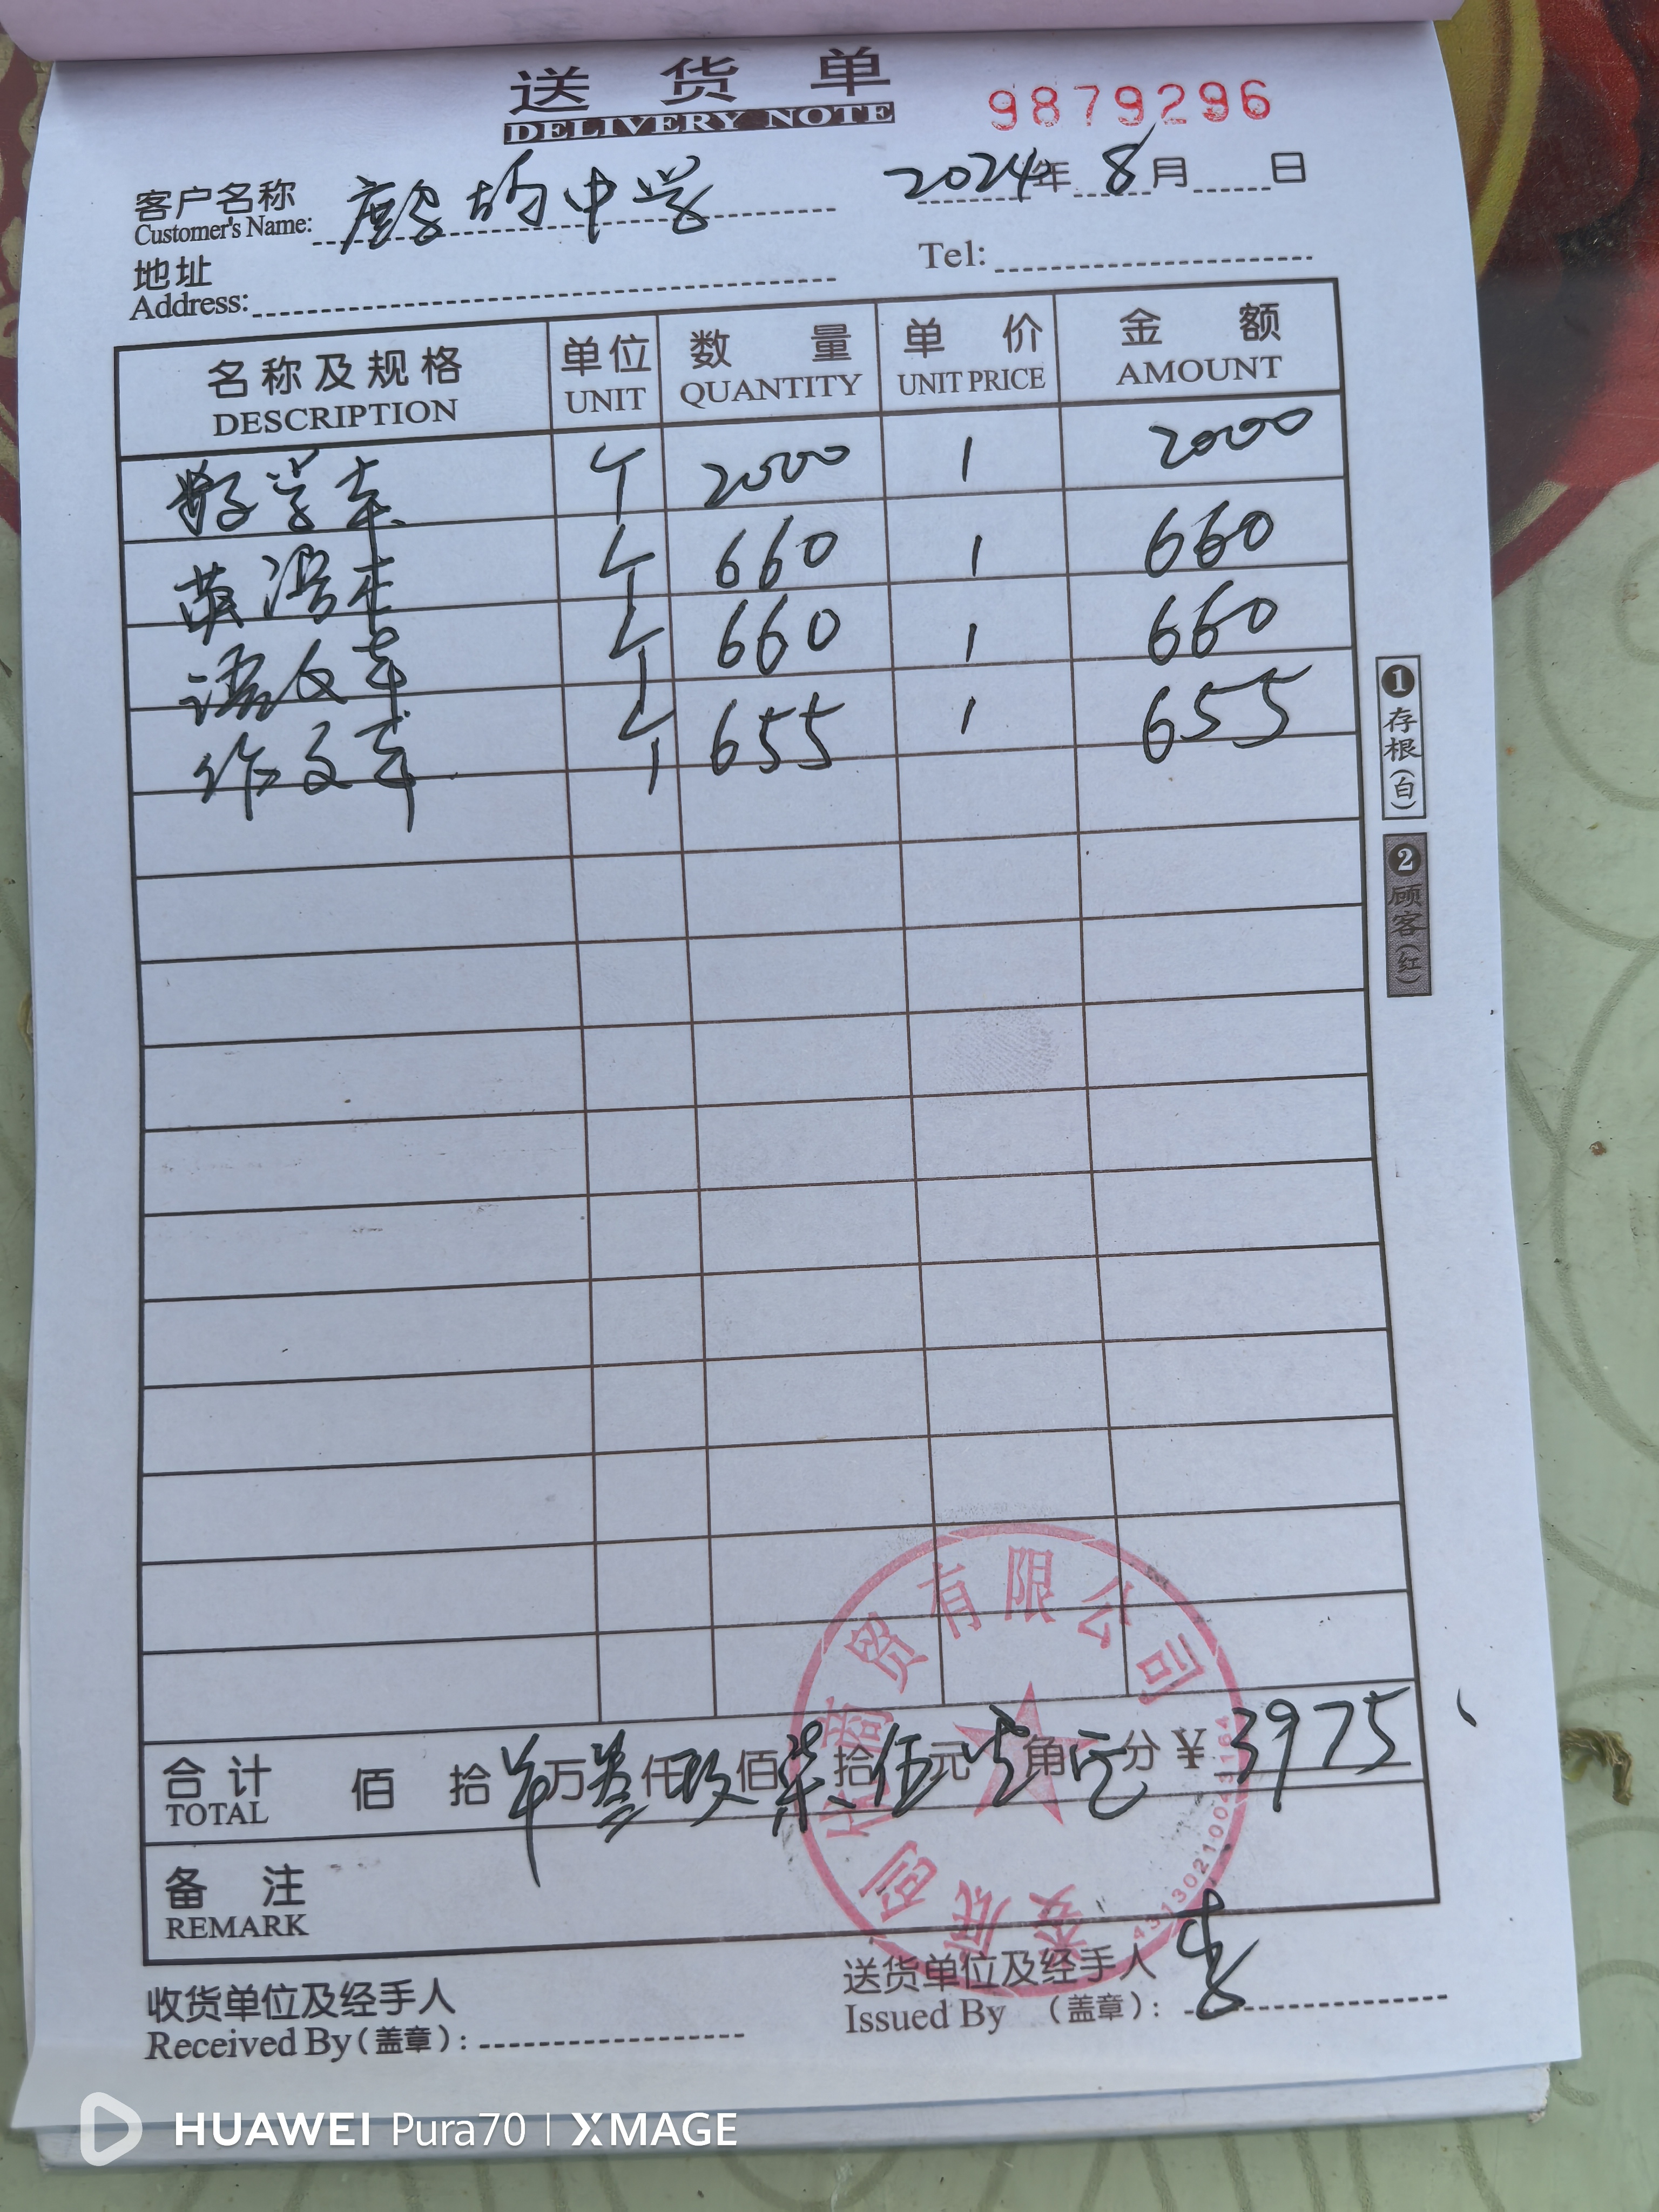 送货单
DELIVERY NOTE
9879296
客户名称 中学
Customer's Name:
2024年8月 日
地址
Address:
Tel:
名称及规格 单位 数量 单价 金额
DESCRIPTION UNIT QUANTITY UNIT PRICE AMOUNT
数学本 个 2000 1 2000
英语本 个 660 1 660
语文本 个 660 1 660
作文本 个 655 1 655
合计 佰 拾 万叁仟玖佰柒拾伍元 角 分 ¥3975
TOTAL
备注
REMARK
收货单位及经手人
Received By(盖章):
送货单位及经手人
Issued By (盖章):
❶存根(白)
❷顾客(红)
商贸有限公司
HUAWEI Pura70 | XMAGE